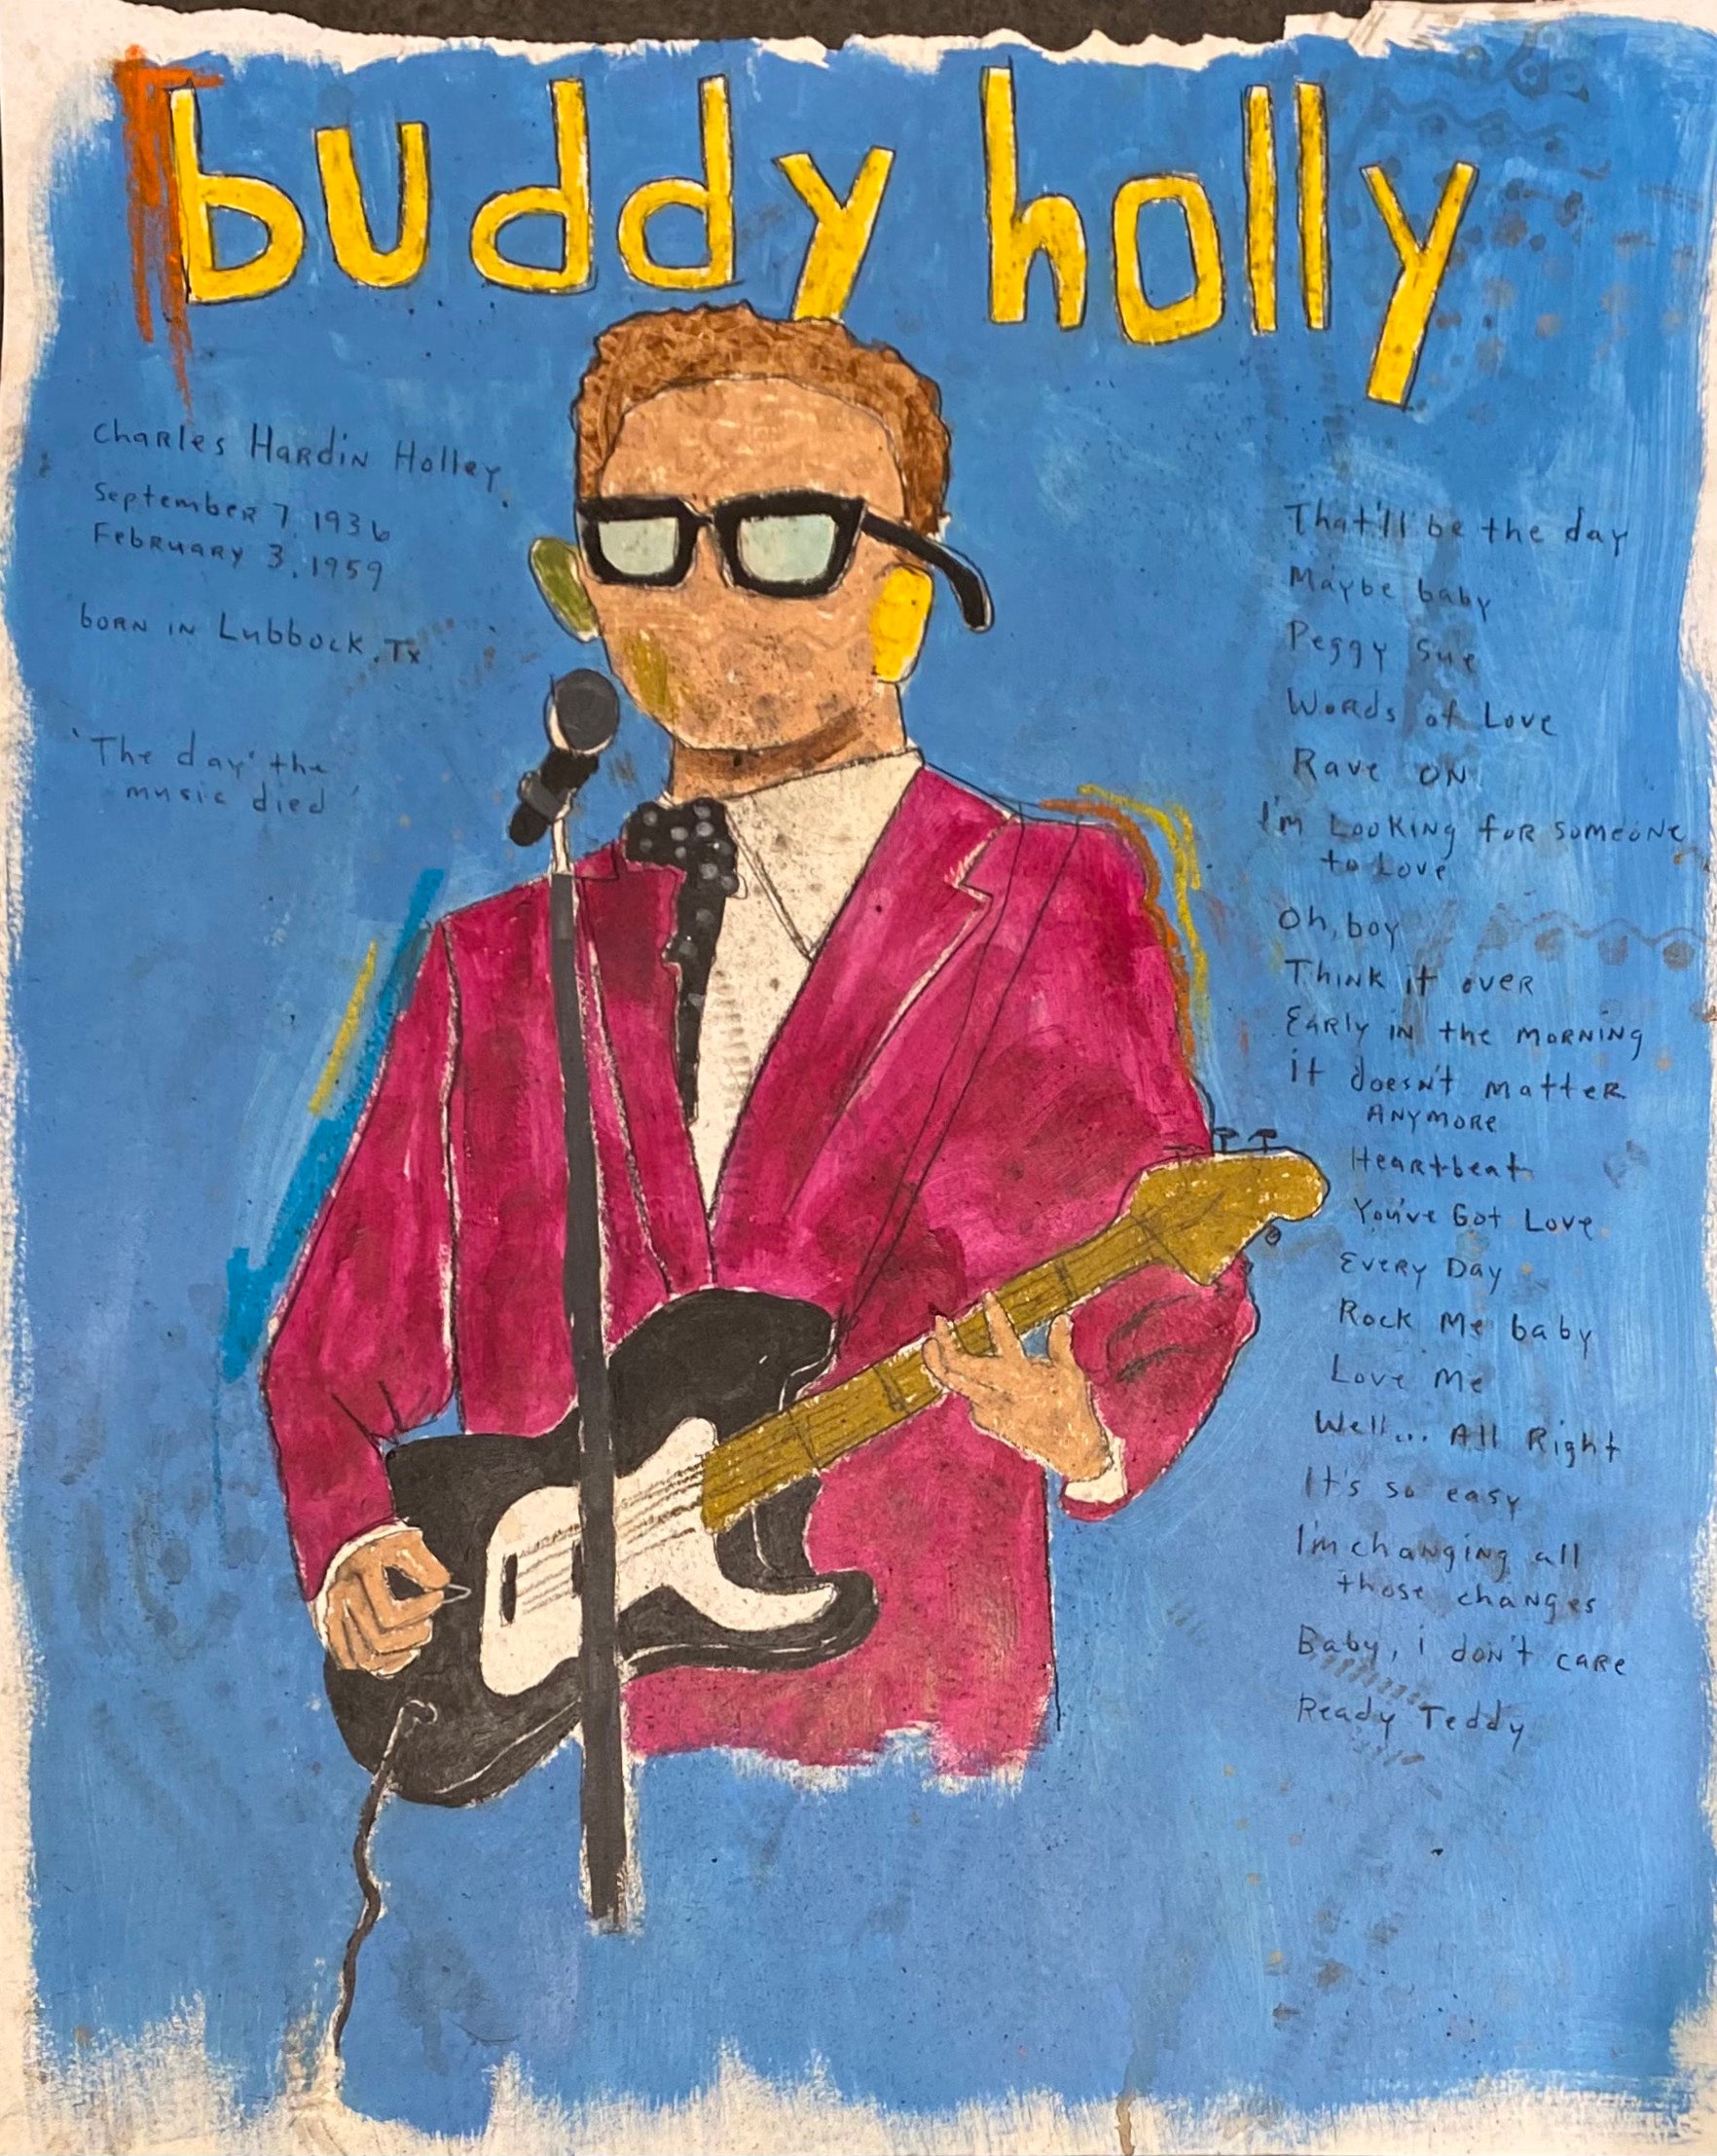 buddy holly
Charles Hardin Holley
September 7, 1936
February 3, 1959
born in Lubbock, Tx
'The day' the
music died'
That'll be the day
Maybe baby
Peggy Sue
Words of Love
Rave on
I'm Looking for someone
to Love
Oh, boy
Think it over
Early in the morning
it doesn't matter
Anymore
Heartbeat
You've Got Love
Every Day
Rock Me baby
Love Me
Well... All Right
It's so easy
I'm changing all
those changes
Baby, i don't care
Ready Teddy